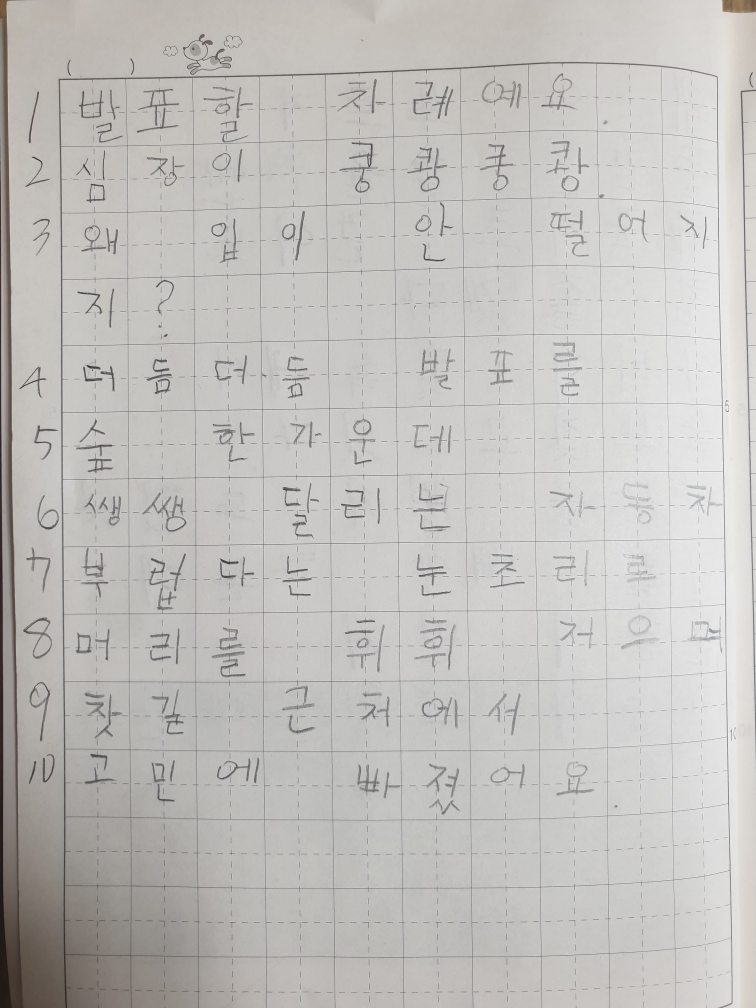 ( )
1 발표할 차례에요.
2 심장이 쿵쾅쿵쾅.
3 왜 입이 안 떨어지
지?
4 더듬더듬 발표를
5 숲 한가운데
6 쌩쌩 달리는 자동차
5
7 부럽다는 눈초리로
8 머리를 휘휘 저으며
9 찻길 근처에서
10
10 고민에 빠졌어요.